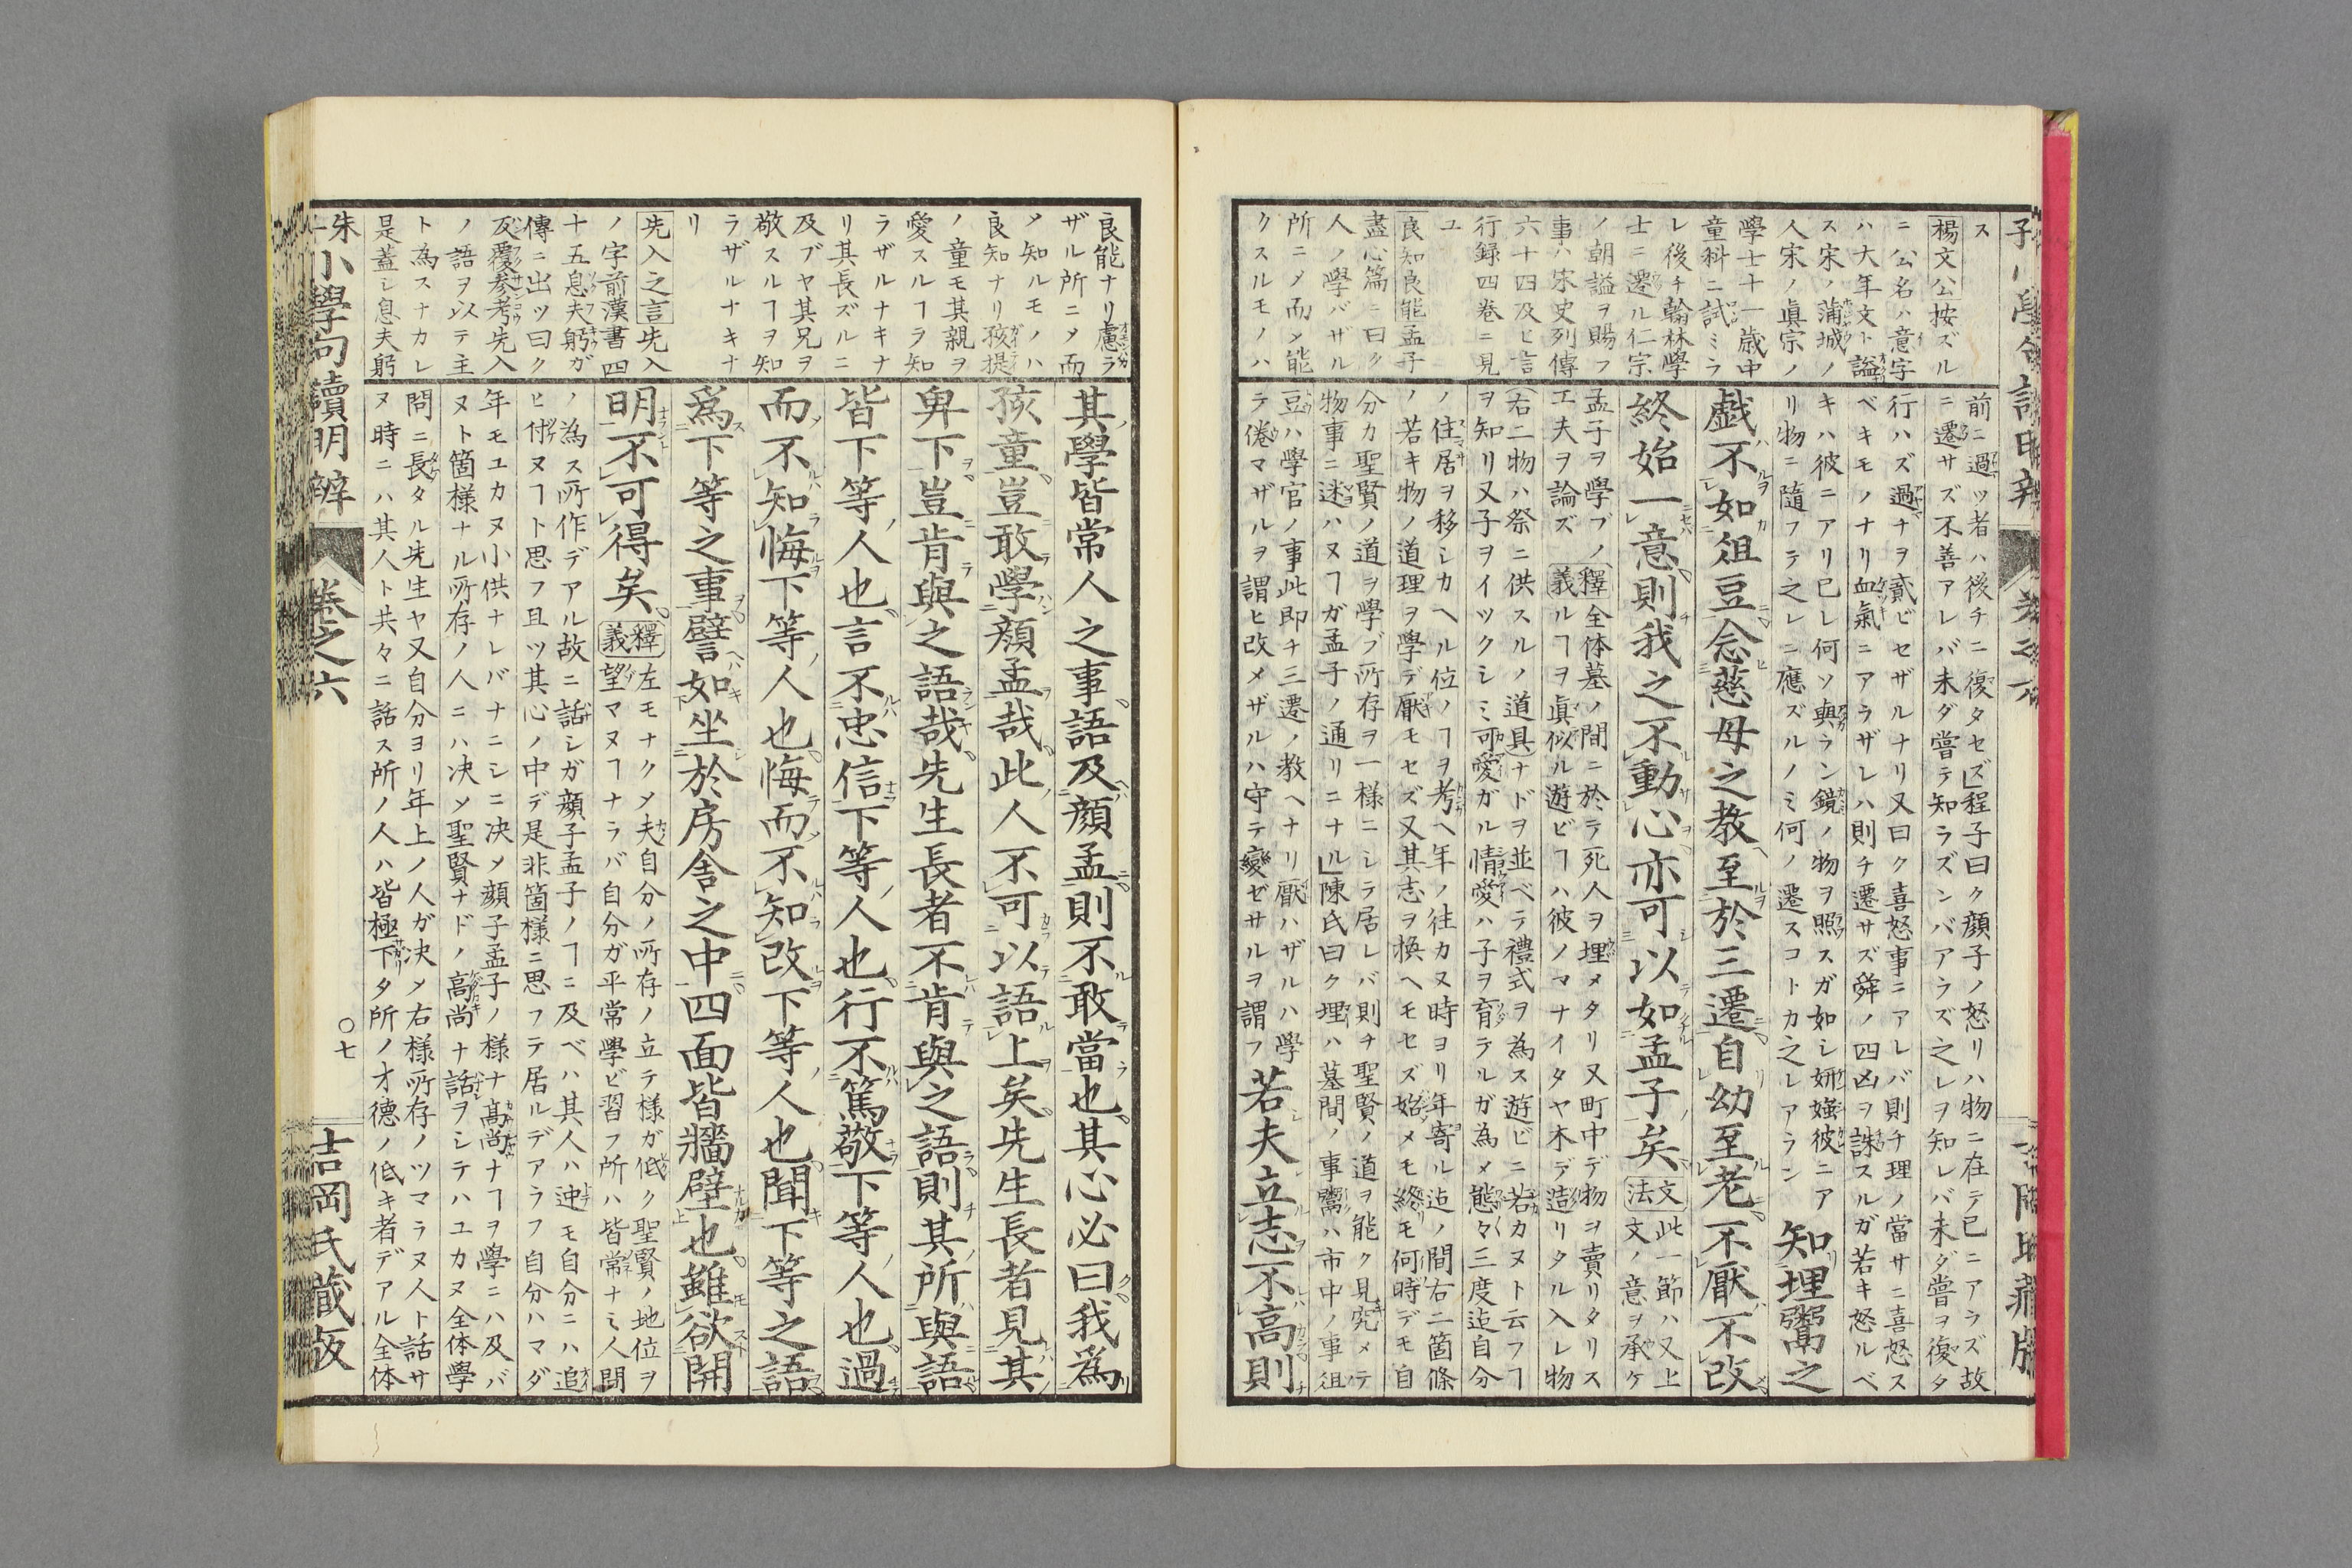 ス
楊文公按ズル
ニ公名ハ意字
ハ大年文ト謚
ス宋ノ蒲城ノ
人宋ノ眞宗ノ
學士十一歳中
童科ニ試ミラ
レ後チ翰林學
士ニ遷ル仁宗
ノ朝謚ヲ賜フ
事ハ宋史列傳
六十四及ヒ言
行録四巻ニ見
ユ
良知良能孟子
盡心篇ニ曰ク
人ノ學バザル
所ニメ而メ能
クスルモノハ
前ニ過ツ者ハ後チニ復タセズ」程子曰ク顔子ノ怒リハ物ニ在テ已ニアラズ故
ニ遷サズ不善アレバ未ダ嘗テ知ラズンバアラズ之レヲ知レバ未ダ嘗ヲ復タ
行ハズ過チヲ貳ビセザルナリ又曰ク喜怒事ニアレバ則チ理ノ當サニ喜怒ス
ベキモノナリ血氣ニアラザレハ則チ遷サズ舜ノ四凶ヲ誅スルガ若キ怒ルベ
キハ彼ニアリ已レ何ソ與ラン鏡ノ物ヲ照スガ如シ妍媸彼ニア
リ物ニ隨フテ之レニ應ズルノミ何ノ遷スコトカ之レアラン
知埋鬻之
戯不如俎豆念慈母之教至於三遷自幼至老不厭不改
終始一意則我之不動心亦可以如孟子矣
文法
此一節ハ又上
文ノ意ヲ承ケ
孟子ヲ學ブノ
工夫ヲ論ズ
釋義
全体墓ノ間ニ於テ死人ヲ埋メタリ又町中デ物ヲ賣リタリス
ルヿヲ眞似ル遊ビヿハ彼ノマナイタヤ木デ造リタル入レ物
(右二物ハ祭ニ供スルノ道具)ナドヲ並ベテ禮式ヲ為ス遊ビニ若カヌト云フヿ
ヲ知リ又子ヲイツクシミ可愛ガル情愛ハ子ヲ育テルガ為メ態々三度迠自分
ノ住居ヲ移シカヘル位ノヿヲ考ヘ年ノ往カヌ時ヨリ年寄ル迠ノ間右二箇條
ノ若キ物ノ道理ヲ學デ厭モセズ又其志ヲ換ヘモセズ始メモ終モ何時デモ自
分カ聖賢ノ道ヲ學ブ所存ヲ一様ニシテ居レバ則チ聖賢ノ道ヲ能ク見究メテ
物事ニ迷ハヌヿガ孟子ノ通リニナル」陳氏曰ク埋ハ墓間ノ事鬻ハ市中ノ事俎
豆ハ學官ノ事此即チ三遷ノ教ヘナリ厭ハザルハ學
テ倦マザルヲ謂ヒ改メザルハ守テ變ゼサルヲ謂フ
若夫立志不高則
良能ナリ慮ラ
ザル所ニメ而
メ知ルモノハ
良知ナリ孩提
ノ童モ其親ヲ
愛スルヿヲ知
ラザルナキナ
リ其長ズルニ
及ブヤ其兄ヲ
敬スルヿヲ知
ラザルナキナ
リ
先入之言先入
ノ字前漢書四
十五息夫躬ガ
傳ニ出ツ曰ク
反覆参考先入
ノ語ヲ以テ主
ト為スナカレ
是蓋シ息夫躬
其學皆常人之事語及顔孟則不敢當也其心必曰我為
孩童豈敢學顔孟哉此人不可以語上矣先生長者見其
卑下豈肯與之語哉先生長者不肯與之語則其所與語
皆下等人也言不忠信下等人也行不篤敬下等人也過
而不知悔下等人也悔而不知改下等人也聞下等之語
爲下等之事譬如坐於房舎之中四面皆牆壁也雖欲開
明不可得矣
釋義
左モナクメ夫自分ノ所存ノ立テ様ガ低ク聖賢ノ地位ヲ
望マヌヿナラバ自分ガ平常學ビ習フ所ハ皆常ナミ人間
ノ為ス所作デアル故ニ話シガ顔子孟子ノヿニ及ベハ其人ハ迚モ自分ニハ追
ヒ付ヌヿト思フ且ツ其心ノ中デ是非箇様ニ思フテ居ルデアラフ自分ハマダ
年モユカヌ小供ナレバナニシニ决メ顔子孟子ノ様ナ高尚ナヿヲ學ニハ及バ
ヌト箇様ナル所存ノ人ニハ决メ聖賢ナドノ高尚ナ話ヲシテハユカヌ全体學
問ニ長タル先生ヤ又自分ヨリ年上ノ人ガ决メ右様所存ノツマラヌ人ト話サ
ヌ時ニハ其人ト共々ニ話ス所ノ人ハ皆極下タ所ノ才德ノ低キ者デアル全体
朱子小學句讀明辨 巻之六 〇七 吉岡氏藏版